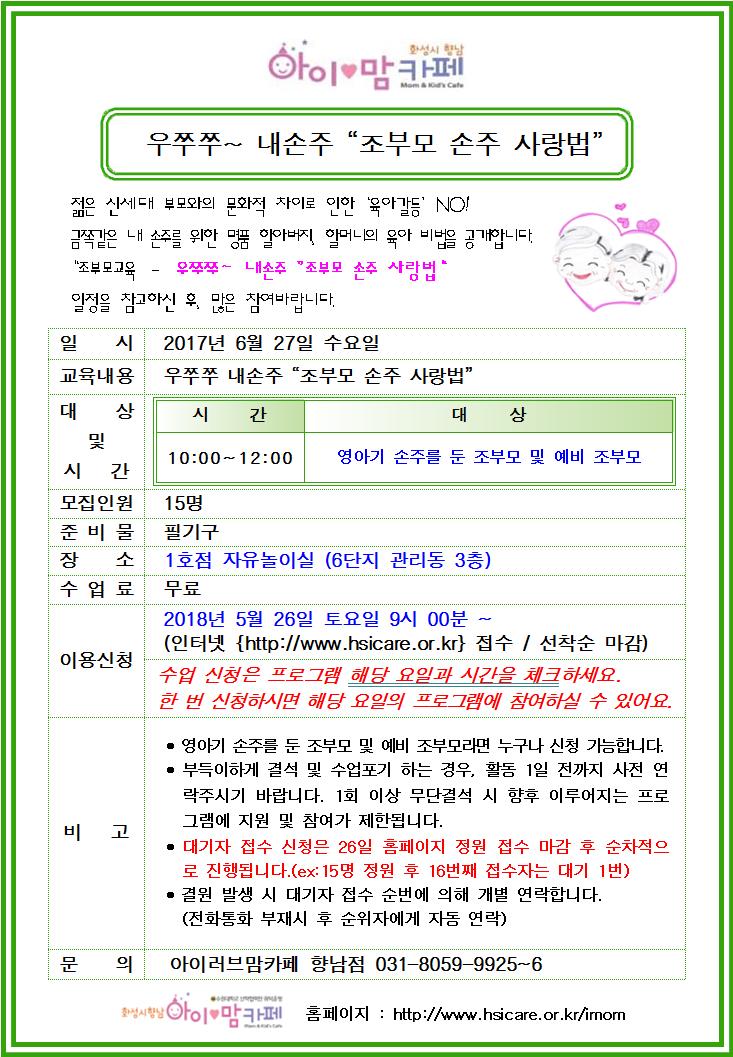 화성시 향남
아이♥맘카페
Mom & Kid's Cafe
우쭈쭈~ 내손주 “조부모 손주 사랑법”
젊은 신세대 부모와의 문화적 차이로 인한 '육아갈등' NO!
금쪽같은 내 손주를 위한 명품 할아버지, 할머니의 육아 비법을 공개합니다.
"조부모교육 - 우쭈쭈~ 내손주 "조부모 손주 사랑법"
일정을 참고하신 후, 많은 참여바랍니다.
일 시 2017년 6월 27일 수요일
교육내용 우쭈쭈 내손주 “조부모 손주 사랑법”
대 상 및 시 간
시 간 대 상
10:00~12:00 영아기 손주를 둔 조부모 및 예비 조부모
모집인원 15명
준 비 물 필기구
장 소 1호점 자유놀이실 (6단지 관리동 3층)
수 업 료 무료
이용신청
2018년 5월 26일 토요일 9시 00분 ~
(인터넷 {http://www.hsicare.or.kr} 접수 / 선착순 마감)
수업 신청은 프로그램 해당 요일과 시간을 체크하세요.
한 번 신청하시면 해당 요일의 프로그램에 참여하실 수 있어요.
비 고
• 영아기 손주를 둔 조부모 및 예비 조부모라면 누구나 신청 가능합니다.
• 부득이하게 결석 및 수업포기 하는 경우, 활동 1일 전까지 사전 연
락주시기 바랍니다. 1회 이상 무단결석 시 향후 이루어지는 프로
그램에 지원 및 참여가 제한됩니다.
• 대기자 접수 신청은 26일 홈페이지 정원 접수 마감 후 순차적으
로 진행됩니다.(ex:15명 정원 후 16번째 접수자는 대기 1번)
• 결원 발생 시 대기자 접수 순번에 의해 개별 연락합니다.
(전화통화 부재시 후 순위자에게 자동 연락)
문 의 아이러브맘카페 향남점 031-8059-9925~6
화성시향남 아이♥맘카페
Mom & Kid's Cafe
홈페이지 : http://www.hsicare.or.kr/imom